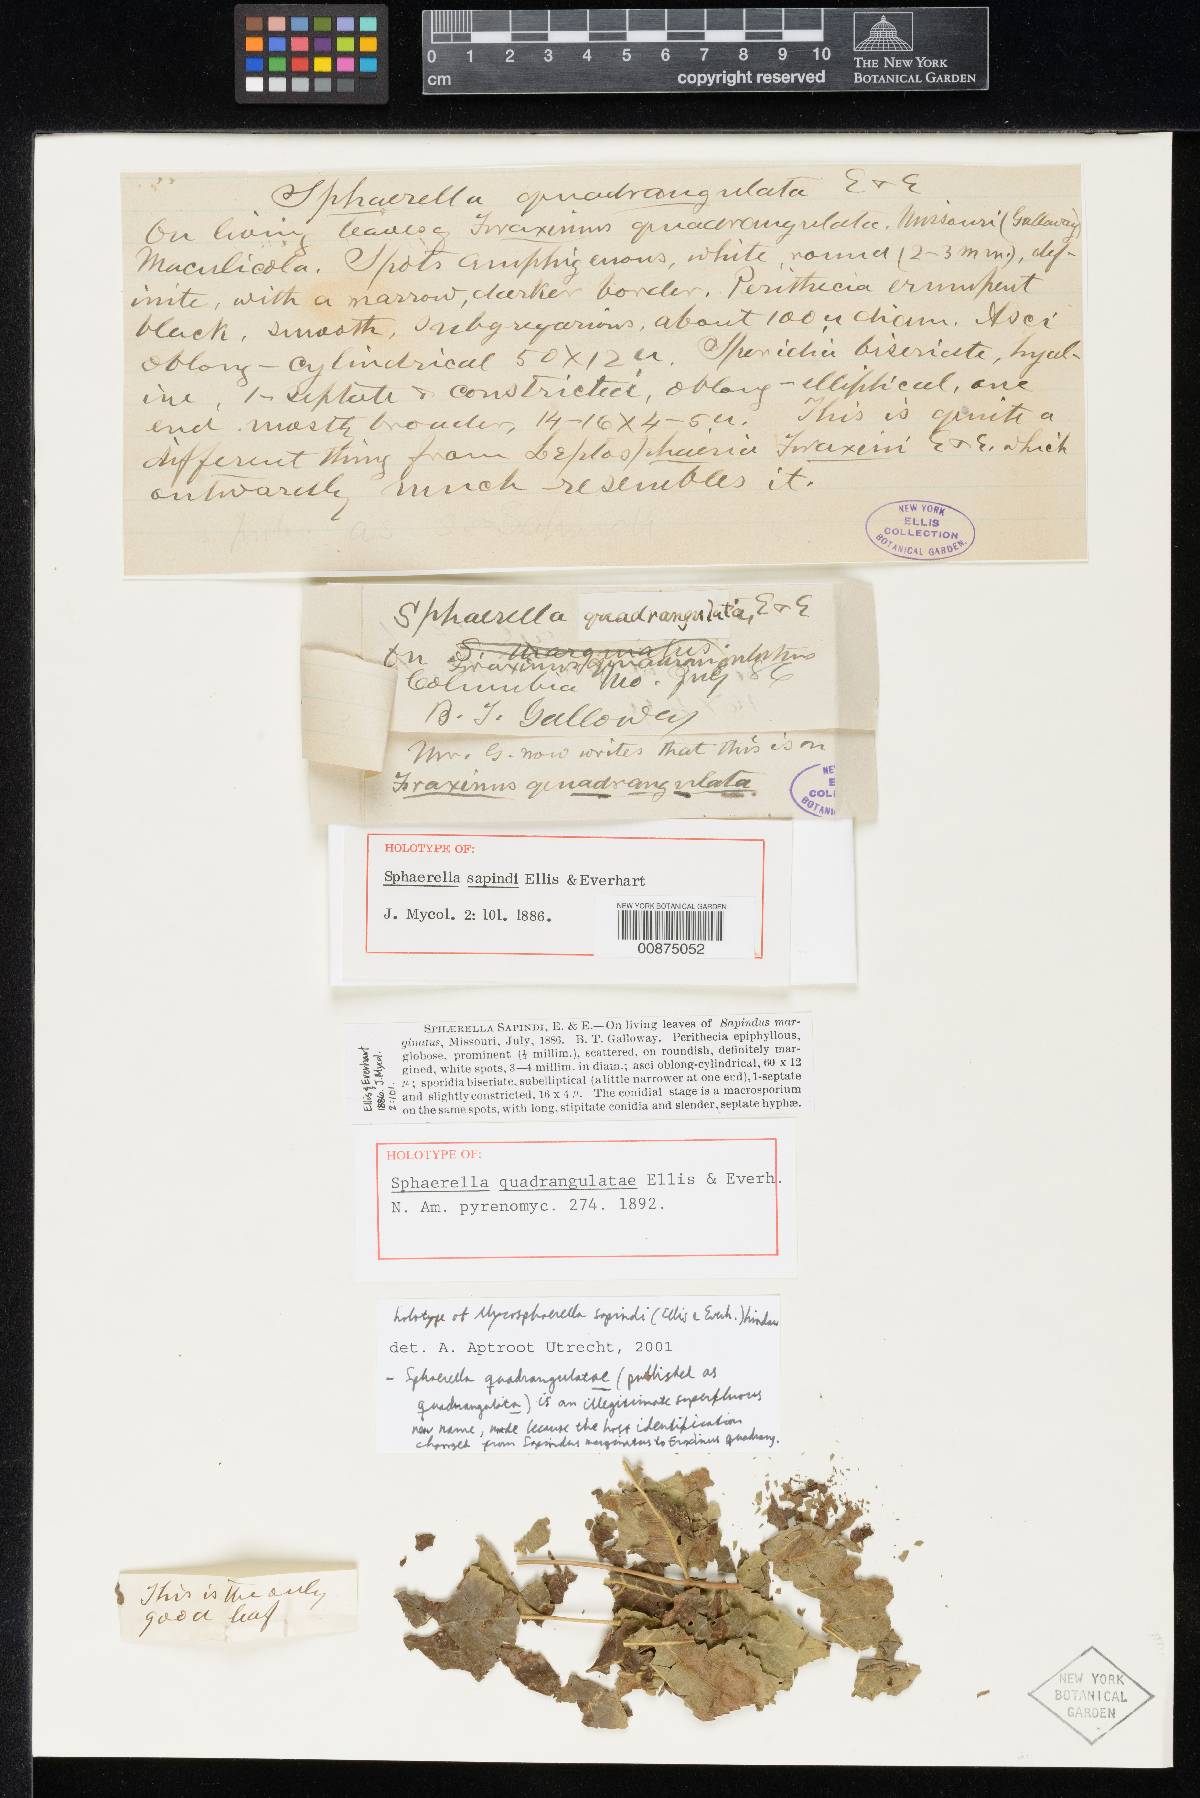 0 1 2 3 4 5 6 7 8 9 10
cm
copyright reserved
THE NEW YORK
BOTANICAL GARDEN
Sphaerella quadrangulata E & E
On living leaves of Fraxinus quadrangulata. Missouri (Galloway)
Maculicola. Spots amphigenous, white, round (2-3 mm.), def-
inite, with a narrow, darker border. Perithecia erumpent
black, smooth, subgregarious, about 100 u diam. Asci
oblong-cylindrical 50 X 12 u. Sporidia biseriate, hyal-
ine, 1-septate & constricted, oblong-elliptical, one
end mostly broader, 14-16 X 4-5 u. This is quite a
different thing from Leptosphaeria Fraxini E & E. which
outwardly much resembles it.
NEW YORK
ELLIS
COLLECTION
BOTANICAL GARDEN.
Sphaerella quadrangulata, E & E
on S. marginatus
Fraxinus quadrangulatus
Columbia Mo. July 86
B. T. Galloway
Mr. G. now writes that this is on
Fraxinus quadrangulata
NE
E
COL
BOTANI
HOLOTYPE OF:
Sphaerella sapindi Ellis & Everhart
J. Mycol. 2: 101. 1886.
NEW YORK BOTANICAL GARDEN
00875052
Ellis & Everhart
1886. J. Mycol.
2:101.
SPHÆRELLA SAPINDI, E. & E.—On living leaves of Sapindus mar-
ginatus, Missouri, July, 1886. B. T. Galloway. Perithecia epiphyllous,
globose, prominent (⅓ millim.), scattered, on roundish, definitely mar-
gined, white spots, 3—4 millim. in diam.; asci oblong-cylindrical, 60 x 12
µ; sporidia biseriate, subelliptical (a little narrower at one end), 1-septate
and slightly constricted, 16 x 4 µ. The conidial stage is a macrosporium
on the same spots, with long, stipitate conidia and slender, septate hyphæ.
HOLOTYPE OF:
Sphaerella quadrangulatae Ellis & Everh.
N. Am. pyrenomyc. 274. 1892.
holotype of Mycosphaerella sapindi (Ellis & Everh.) Lindau
det. A. Aptroot Utrecht, 2001
- Sphaerella quadrangulatae (published as
quadrangulata) is an illegitimate superfluous
new name, made because the host identification
changed from Sapindus marginatus to Fraxinus quadrang.
This is the only
good leaf
NEW YORK
BOTANICAL
GARDEN